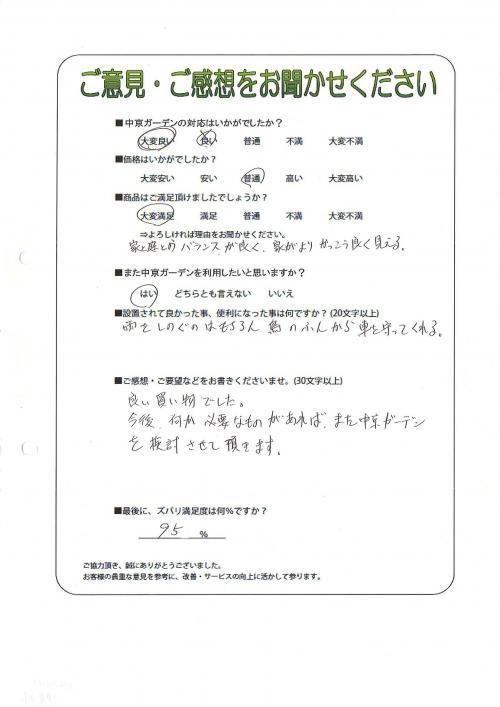 ご意見・ご感想をお聞かせください
■中京ガーデンの対応はいかがでしたか?
大変良い 良い 普通 不満 大変不満
■価格はいかがでしたか?
大変安い 安い 普通 高い 大変高い
■商品はご満足頂けましたでしょうか?
大変満足 満足 普通 不満 大変不満
⇒よろしければ理由をお聞かせください。
家と庭とのバランスが良く、家がよりかっこう良く見える。
■また中京ガーデンを利用したいと思いますか?
はい どちらとも言えない いいえ
■設置されて良かった事、便利になった事は何ですか?(20文字以上)
雨をしのぐのはもちろん鳥のふんから車を守ってくれる。
■ご感想・ご要望などをお書きくださいませ。(30文字以上)
良い買い物でした。
今後、何か必要なものがあれば、また中京ガーデン
を検討させて頂きます。
■最後に、ズバリ満足度は何%ですか?
95 %
ご協力頂き、誠にありがとうございました。
お客様の貴重な意見を参考に、改善・サービスの向上に活かして参ります。